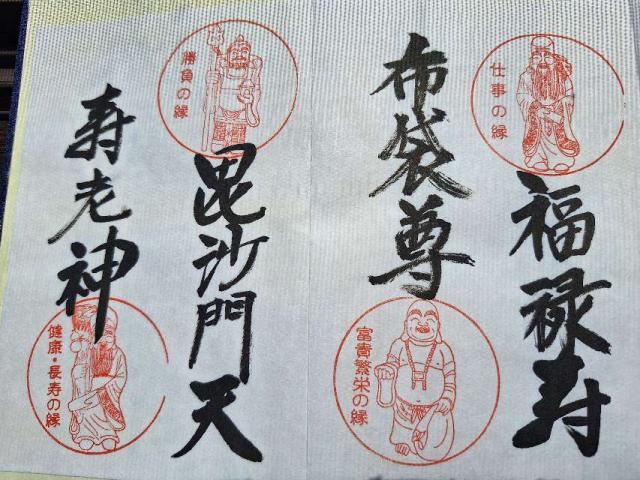 仕事の縁
福禄寿
布袋尊
富貴繁栄の縁
勝負の縁
毘沙門天
寿老神
健康・長寿の縁